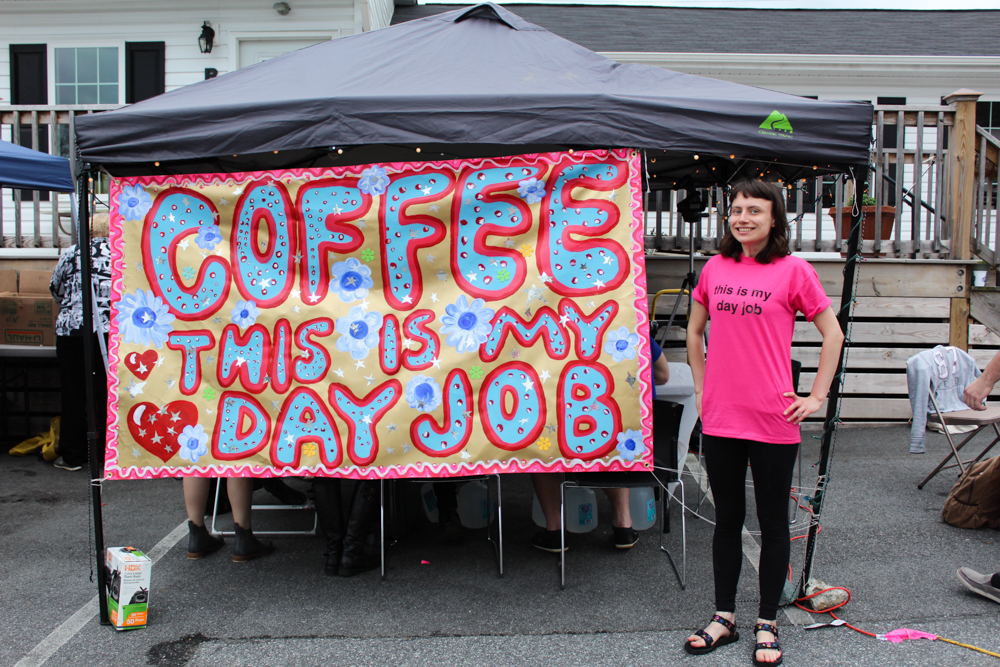 COFFEE
THIS IS MY
DAY JOB
this is my
day job
HDX
50